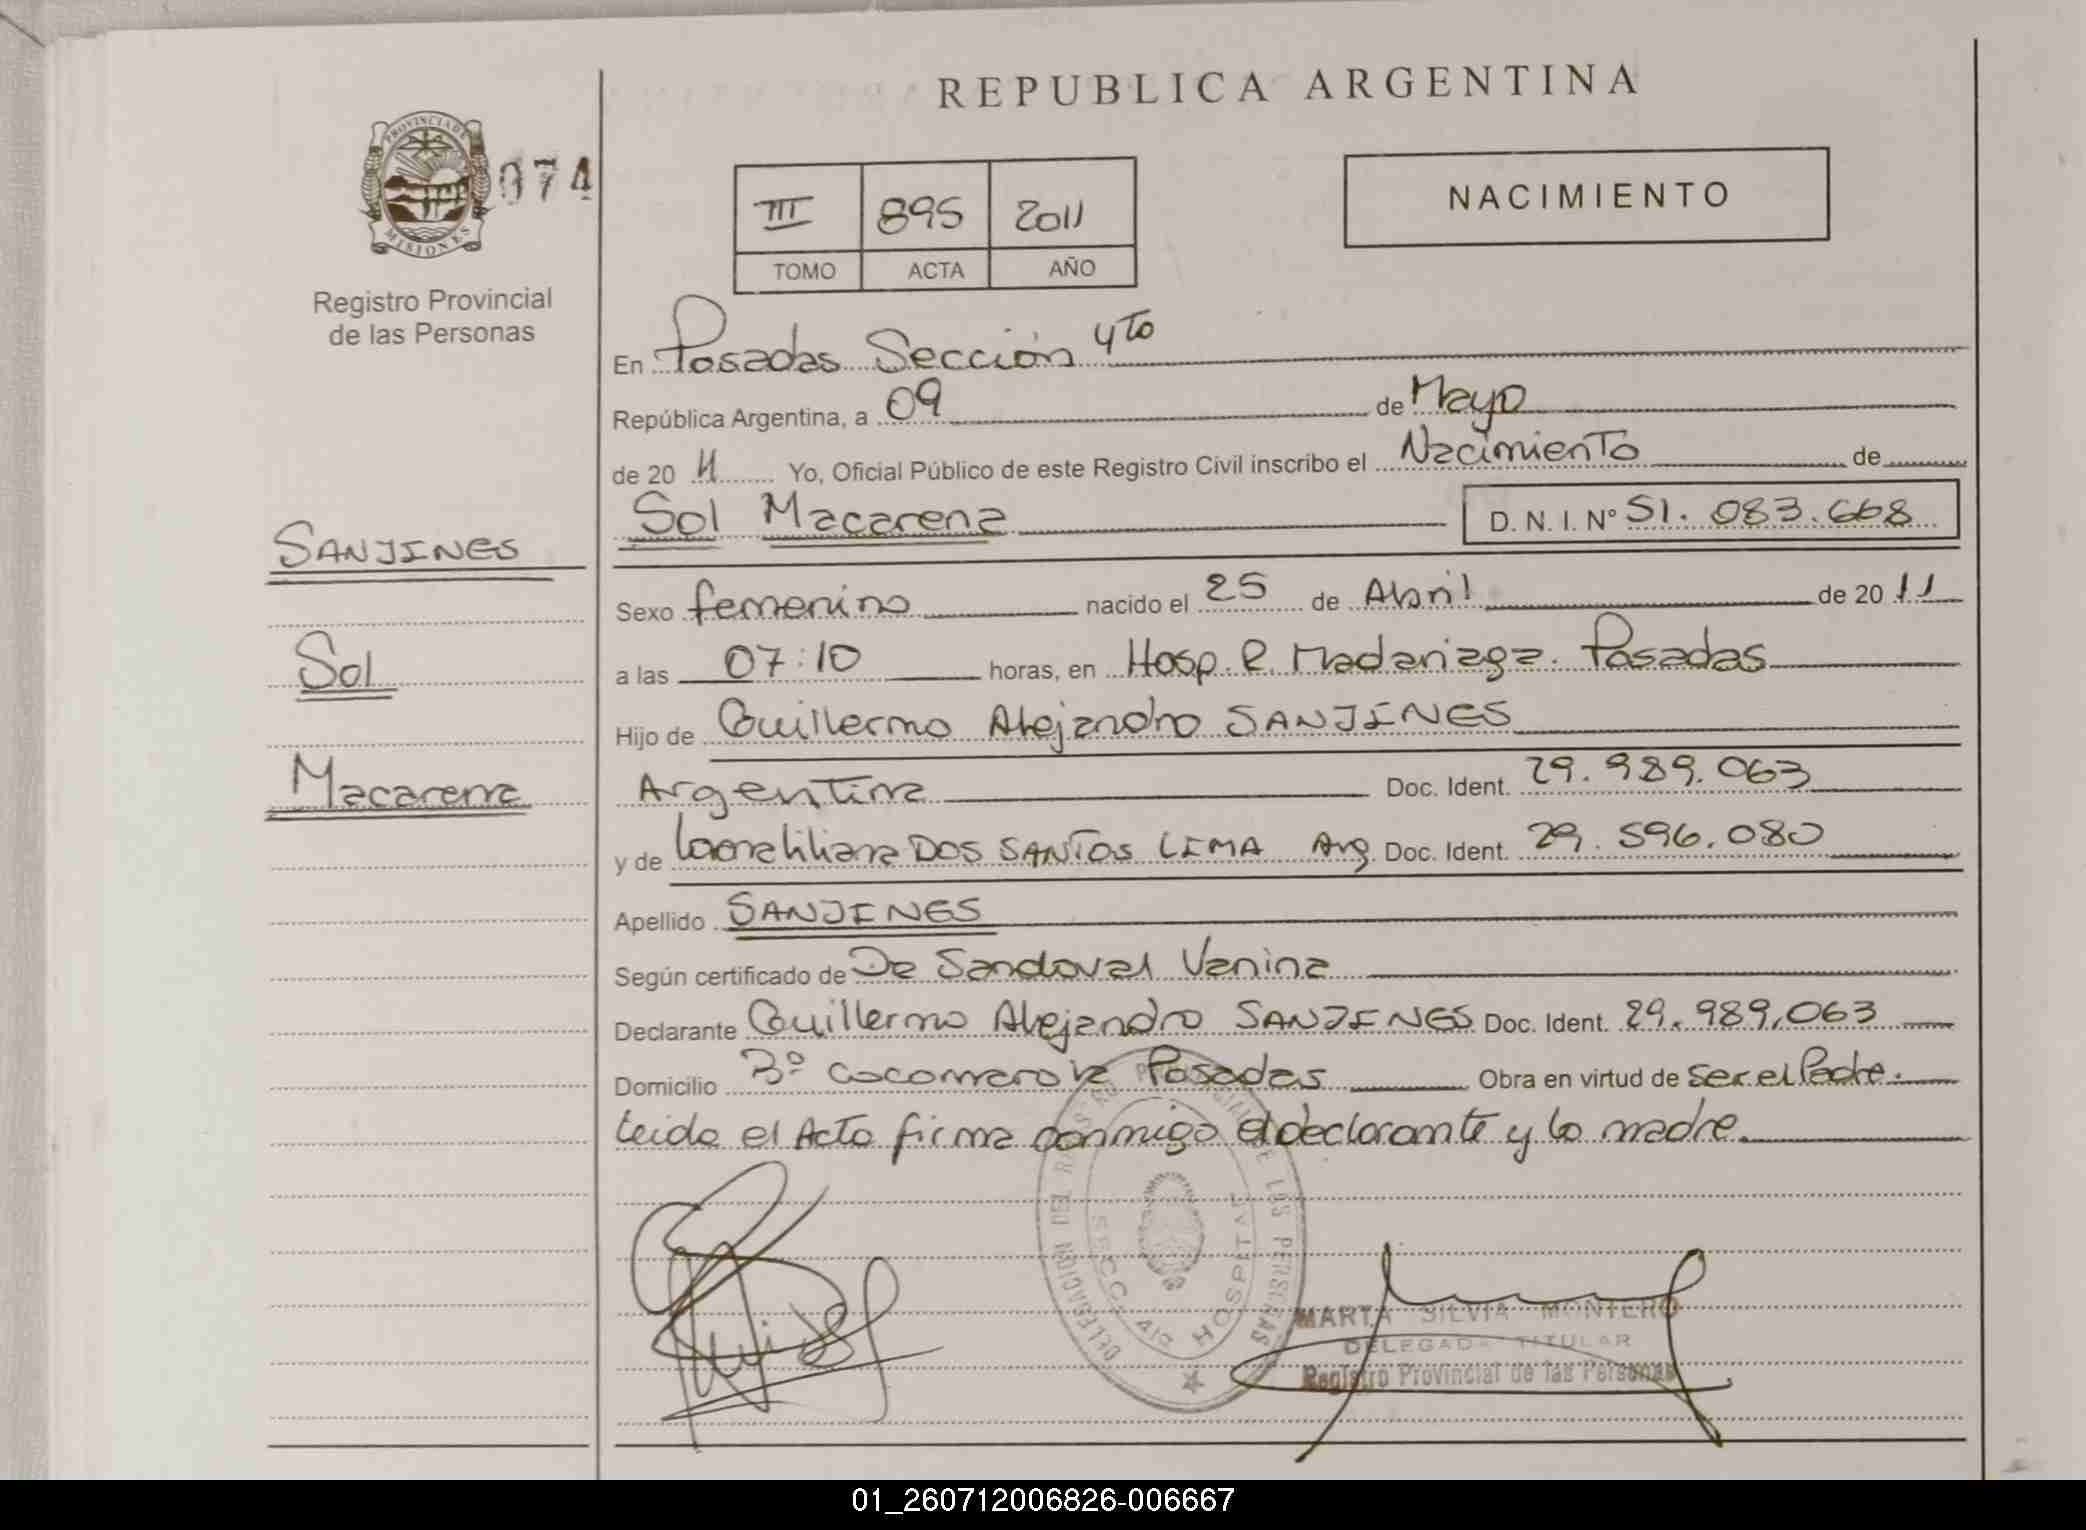 REPUBLICA ARGENTINA
PROVINCIA DE
MISIONES
074
Registro Provincial
de las Personas
III 895 2011
TOMO ACTA AÑO
NACIMIENTO
En Posadas Sección 4to
República Argentina, a 09 de Mayo
de 20 11 Yo, Oficial Público de este Registro Civil inscribo el Nacimiento de
Sol Macarena D. N. I. N° 51.083.668
SANJINES
Sol
Macarena
Sexo femenino nacido el 25 de Abril de 20 11
a las 07:10 horas, en Hosp. R. Madariaga. Posadas
Hijo de Guillermo Alejandro SANJINES
Argentina Doc. Ident. 29.989.063
y de DOS SANTOS LIMA Arg. Doc. Ident. 29.596.080
Apellido SANJINES
Según certificado de De Sandoval Vanina
Declarante Guillermo Alejandro SANJINES Doc. Ident. 29.989.063
Domicilio Bº Cocomarola Posadas Obra en virtud de ser el Padre.
Leida el Acta firma conmigo el declarante y la madre.
DELEGACION DEL REGISTRO PROVINCIAL DE LAS PERSONAS
SECC. 4ta HOSPITAL
MARTA SILVIA MONTERO
DELEGADA TITULAR
Registro Provincial de las Personas
01_260712006826-006667